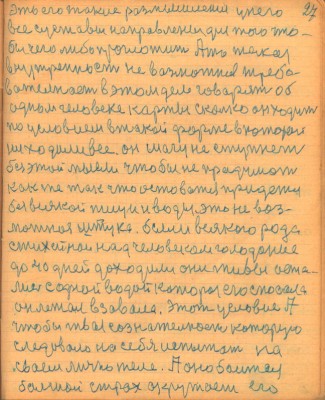 27
это его такие размышления у него
все суставы направлены для того что
бы чего либо проглотит А ть такая
внутренность не важность треба
вателная в этом деле говарят об
одном человеке как ты сколко он ходит
по условием в такой форме в которой
не ходили все. он шагу не ступнет
без этой мысли чтобы не придумат
как не так что оставатся придется
без всякой пищи и воды, это не воз-
можная штука. были всякого рода
стихийное над человеком голодание
до 40 дней доходили они живы оста
лис с одной водой которая его спосала
он летал в завала. Этот условие А
чтобы была сознателность которую
следовало на себя испытат на
своем лично теле. А оно боится
болшой страх окружает его